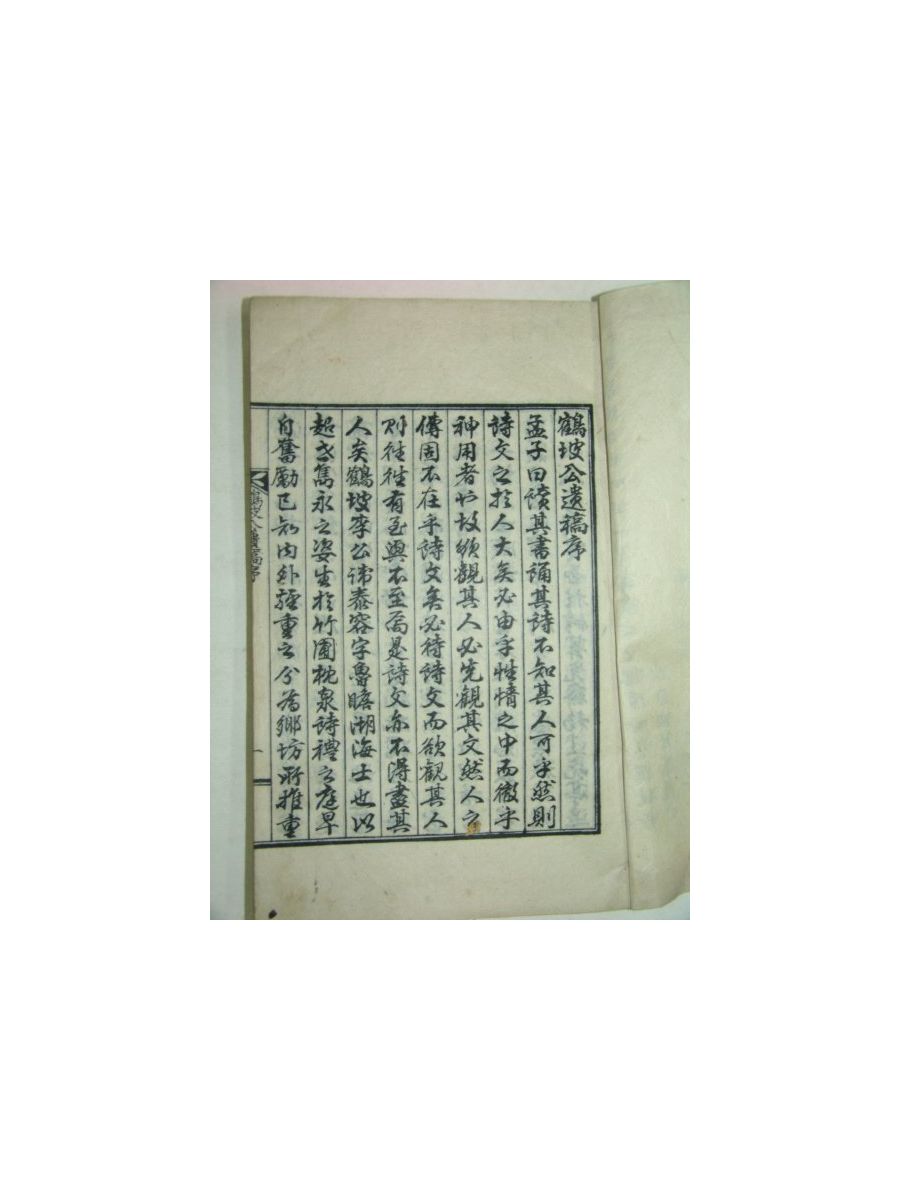 鶴坡公遺稿序
孟子曰讀其書誦其詩不知其人可乎然則
詩文之於人大矣必由乎性情之中而徹乎
神用者也故欲觀其人必先觀其文然人之
傳固不在乎詩文矣必待詩文而欲觀其人
則往往有至與不至焉是詩文亦不得盡其
人矣鶴坡李公諱泰容字魯瞻湖海士也以
超古雋永之姿生於竹圃枕泉詩禮之庭早
自奮勵已知內外輕重之分爲鄉坊所推重
鶴坡公遺稿序
一